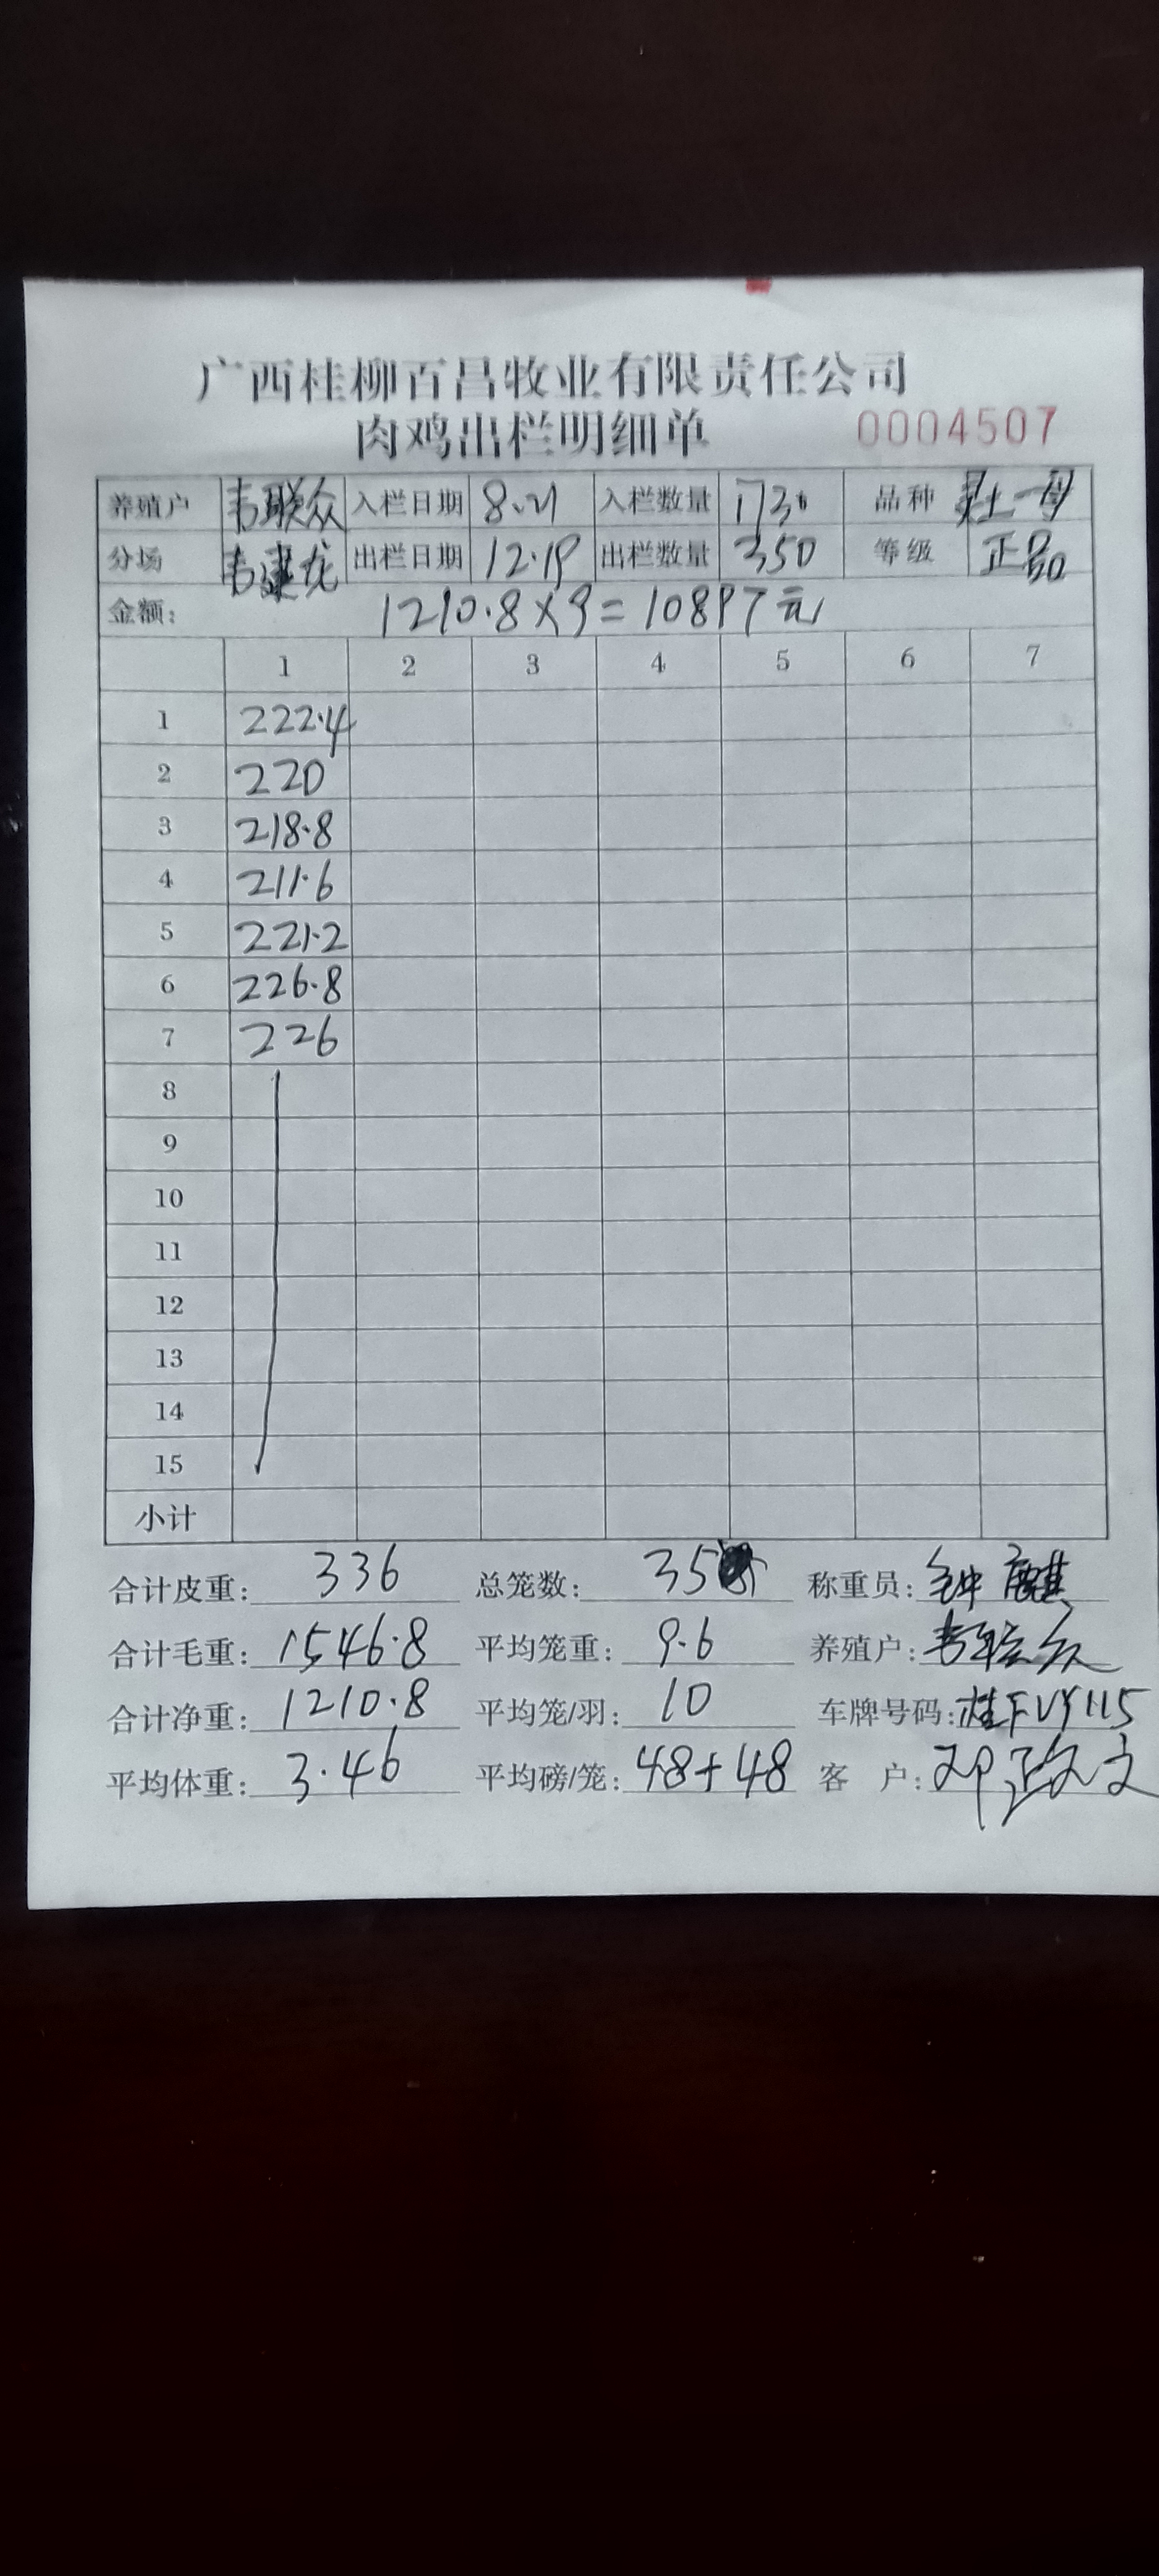 广西桂柳百昌牧业有限责任公司
肉鸡出栏明细单 0004507
养殖户 韦联众 入栏日期 8.21 入栏数量 1730 品种
分场 韦建龙 出栏日期 12.19 出栏数量 350 等级 正品
金额: 1210.8×9=10897元
1 2 3 4 5 6 7
1 222.4
2 220
3 218.8
4 211.6
5 221.2
6 226.8
7 226
8
9
10
11
12
13
14
15
小计
合计皮重: 336 总笼数: 35 称重员: 钟麒
合计毛重: 1546.8 平均笼重: 9.6 养殖户: 韦联众
合计净重: 1210.8 平均笼/羽: 10 车牌号码: 桂FVY115
平均体重: 3.46 平均磅/笼: 48+48 客 户: 邓政文